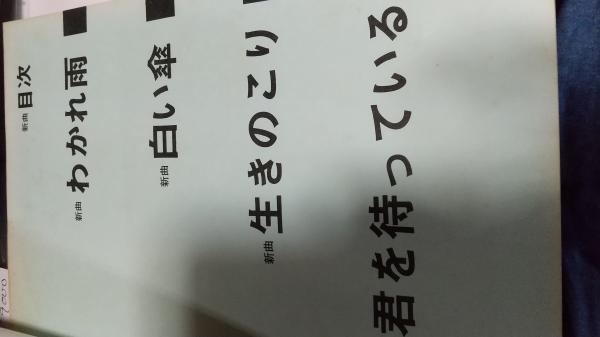 新曲 目次
新曲 わかれ雨
新曲 白い傘
新曲 生きのこり
君を待っている